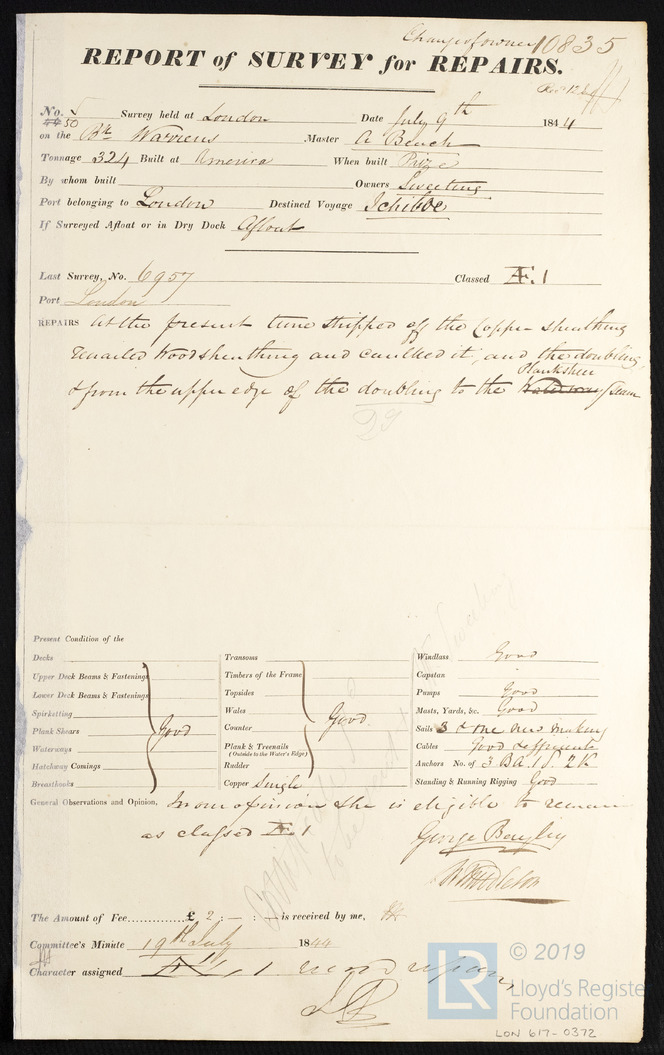 Change of owner 10835
REPORT of SURVEY for REPAIRS.
No. 5 Survey held at London Date July 9th 1844
4450
on the Bk Warriens Master A Bench
Tonnage 324 Built at America When built Prize
By whom built Owners Sweeting
Port belonging to London Destined Voyage Ichiboe
If Surveyed Afloat or in Dry Dock Afloat
Last Survey, No. 6957 Classed Æ.1
Port London
REPAIRS At the present time stripped off the Copper sheathing
renailed Woodsheathing and caulked it, and the doubling,
Planksheer
& from the upper edge of the doubling to the Waterway seam
Present Condition of the
Decks Transoms Windlass Good
Upper Deck Beams & Fastenings Timbers of the Frame Capstan
Lower Deck Beams & Fastenings Topsides Pumps Good
Spirketting Wales Good. Masts, Yards, &c. Good
Plank Shears Good Counter Sails 3 & one new making
Waterways Plank & Treenails (Outside to the Water's Edge) Cables Good & efficient
Hatchway Comings Rudder Anchors No. of 3 BA. 1 S. 2 K
Breasthooks Copper Single Standing & Running Rigging Good
General Observations and Opinion, In our opinion she is eligible to remain
as classed Æ.1
George Bayley
Middleton
The Amount of Fee............£ 2 : — : — is received by me,
Committee's Minute 19th July 1844
Character assigned Æ 1
© 2019
LR
Lloyd's Register
Foundation
LON 617-0372